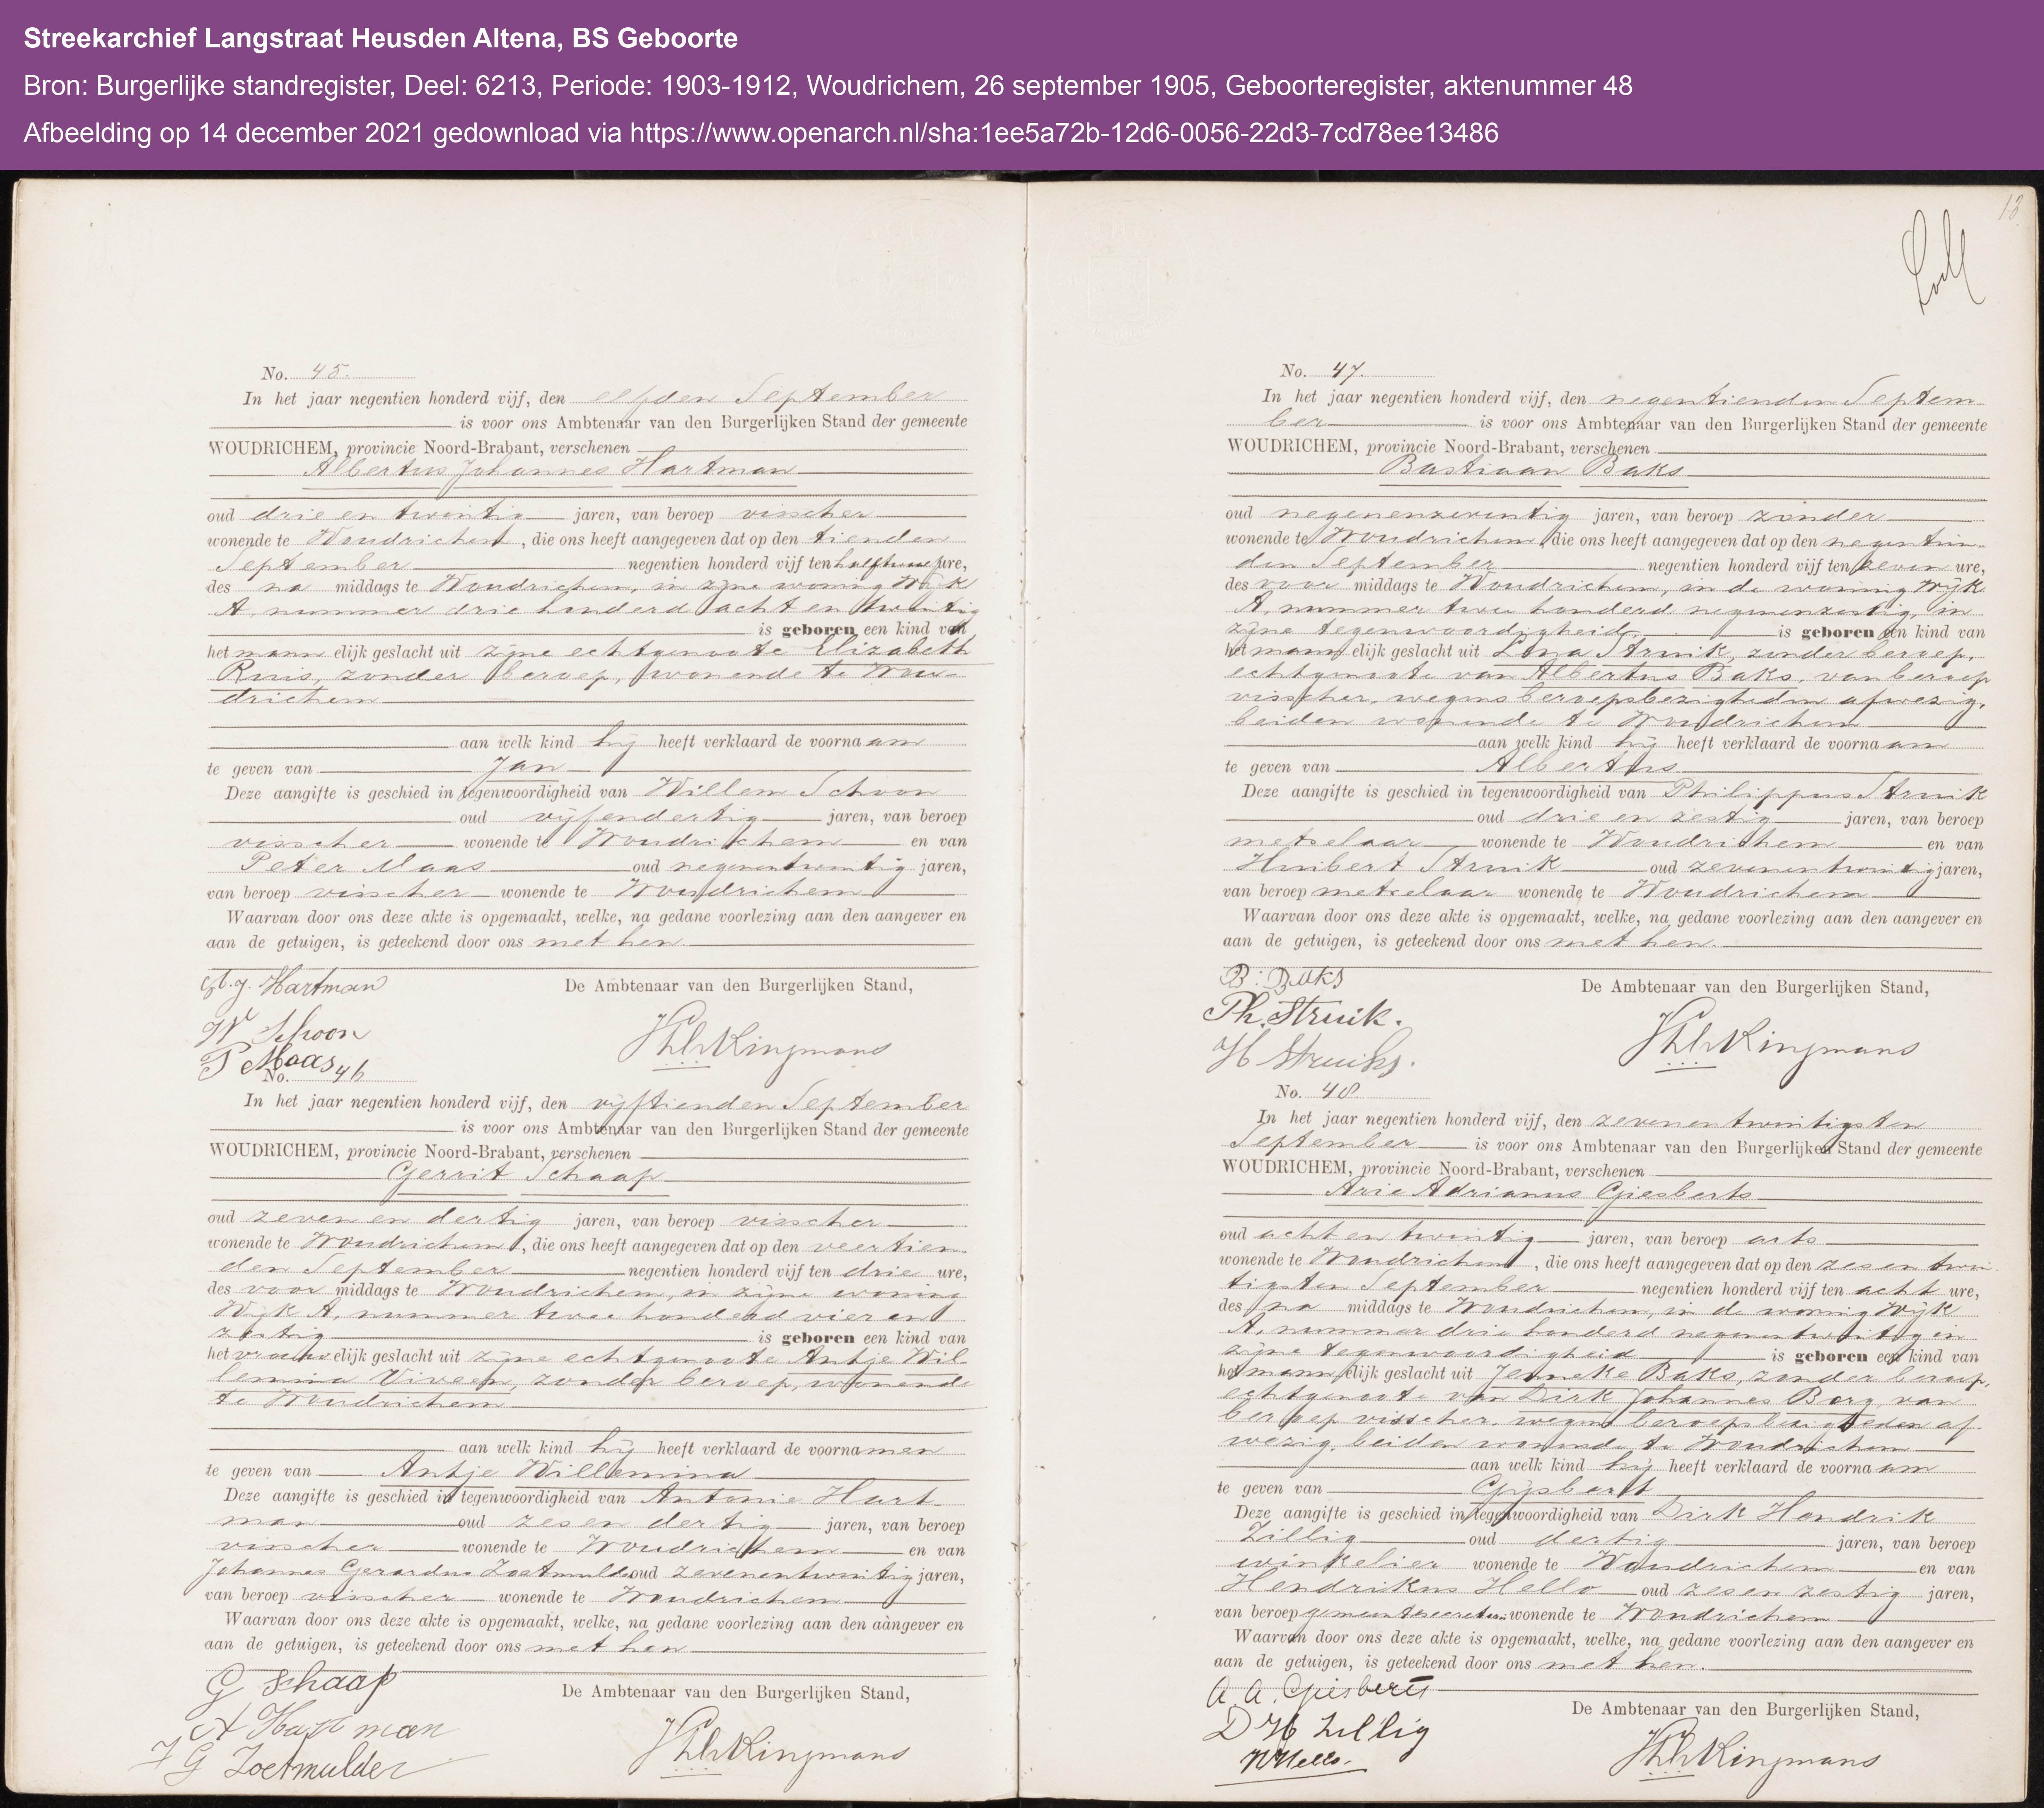 Streekarchief Langstraat Heusden Altena, BS Geboorte
Bron: Burgerlijke standregister, Deel: 6213, Periode: 1903-1912, Woudrichem, 26 september 1905, Geboorteregister, aktenummer 48
Afbeelding op 14 december 2021 gedownload via https://www.openarch.nl/sha:1ee5a72b-12d6-0056-22d3-7cd78ee13486
No. 45.
In het jaar negentien honderd vijf, den elfden September
is voor ons Ambtenaar van den Burgerlijken Stand der gemeente
WOUDRICHEM, provincie Noord-Brabant, verschenen
Albertus Johannes Hartman
oud drie en twintig jaren, van beroep visscher
wonende te Woudrichem, die ons heeft aangegeven dat op den tienden
September negentien honderd vijf ten half twee ure,
des na middags te Woudrichem, in zijne woning Wijk
A, nummer drie honderd acht en twintig
is geboren een kind van
het mannelijk geslacht uit zijne echtgenoote Elizabeth
Ruis, zonder beroep, wonende te Wou-
drichem
aan welk kind hij heeft verklaard de voornaam
te geven van Jan
Deze aangifte is geschied in tegenwoordigheid van Willem Schoon
oud vijfendertig jaren, van beroep
visscher wonende te Woudrichem en van
Peter Maas oud negenentwintig jaren,
van beroep visscher wonende te Woudrichem
Waarvan door ons deze akte is opgemaakt, welke, na gedane voorlezing aan den aangever en
aan de getuigen, is geteekend door ons met hen.
De Ambtenaar van den Burgerlijken Stand,
A. J. Hartman
W Schoon
P Maas
Kingmans
No. 46
In het jaar negentien honderd vijf, den vijftienden September
is voor ons Ambtenaar van den Burgerlijken Stand der gemeente
WOUDRICHEM, provincie Noord-Brabant, verschenen
Gerrit Schaap
oud zeven en dertig jaren, van beroep visscher
wonende te Woudrichem, die ons heeft aangegeven dat op den veertien
den September negentien honderd vijf ten drie ure,
des voor middags te Woudrichem, in zijne woning
Wijk A, nummer twee honderd vier en
zestig is geboren een kind van
het vrouwelijk geslacht uit zijne echtgenoote Antje Wil-
lemina Viveen, zonder beroep, wonende
te Woudrichem
aan welk kind hij heeft verklaard de voornamen
te geven van Antje Willemina
Deze aangifte is geschied in tegenwoordigheid van Antonie Hart-
man oud zes en dertig jaren, van beroep
visscher wonende te Woudrichem en van
Johannes Gerardus Zoetmulder oud zevenentwintig jaren,
van beroep visscher wonende te Woudrichem
Waarvan door ons deze akte is opgemaakt, welke, na gedane voorlezing aan den aangever en
aan de getuigen, is geteekend door ons met hen
De Ambtenaar van den Burgerlijken Stand,
G Schaap
A Hartman
J G Zoetmulder
Kingmans
13
No. 47.
In het jaar negentien honderd vijf, den negentienden Septem-
ber is voor ons Ambtenaar van den Burgerlijken Stand der gemeente
WOUDRICHEM, provincie Noord-Brabant, verschenen
Bastiaan Baks
oud negenenzeventig jaren, van beroep zonder
wonende te Woudrichem, die ons heeft aangegeven dat op den negentien-
den September negentien honderd vijf ten zeven ure,
des voor middags te Woudrichem, in de woning Wijk
A, nummer twee honderd negenenzestig, in
zijne tegenwoordigheid, is geboren een kind van
het mannelijk geslacht uit Lena Struik, zonder beroep,
echtgenoote van Albertus Baks, van beroep
visscher, wegens beroepsbezigheden afwezig,
beiden wonende te Woudrichem
aan welk kind hij heeft verklaard de voornaam
te geven van Albertus
Deze aangifte is geschied in tegenwoordigheid van Philippus Struik
oud drie en zestig jaren, van beroep
metselaar wonende te Woudrichem en van
Huibert Struik oud zevenentwintig jaren,
van beroep metselaar wonende te Woudrichem
Waarvan door ons deze akte is opgemaakt, welke, na gedane voorlezing aan den aangever en
aan de getuigen, is geteekend door ons met hen.
De Ambtenaar van den Burgerlijken Stand,
B: Baks
Ph. Struik.
H Struik.
Kingmans
No. 48
In het jaar negentien honderd vijf, den zevenentwintigsten
September is voor ons Ambtenaar van den Burgerlijken Stand der gemeente
WOUDRICHEM, provincie Noord-Brabant, verschenen
Arie Adrianus Giesberts
oud acht en twintig jaren, van beroep arts
wonende te Woudrichem, die ons heeft aangegeven dat op den zesentwin-
tigsten September negentien honderd vijf ten acht ure,
des na middags te Woudrichem, in de woning Wijk
A, nummer drie honderd negenentwintig in
zijne tegenwoordigheid is geboren een kind van
het mannelijk geslacht uit Jenneke Baks, zonder beroep,
echtgenoote van Dirk Johannes Borg, van
beroep visscher, wegens beroepsbezigheden af-
wezig, beiden wonende te Woudrichem
aan welk kind hij heeft verklaard de voornaam
te geven van Gijsbert
Deze aangifte is geschied in tegenwoordigheid van Dirk Hendrik
Zillig oud dertig jaren, van beroep
winkelier wonende te Woudrichem en van
Hendrikus Hello oud zes en zestig jaren,
van beroep gemeentesecretaris wonende te Woudrichem
Waarvan door ons deze akte is opgemaakt, welke, na gedane voorlezing aan den aangever en
aan de getuigen, is geteekend door ons met hen.
De Ambtenaar van den Burgerlijken Stand,
A. A. Giesberts
D H Zillig
H Hello.
Kingmans